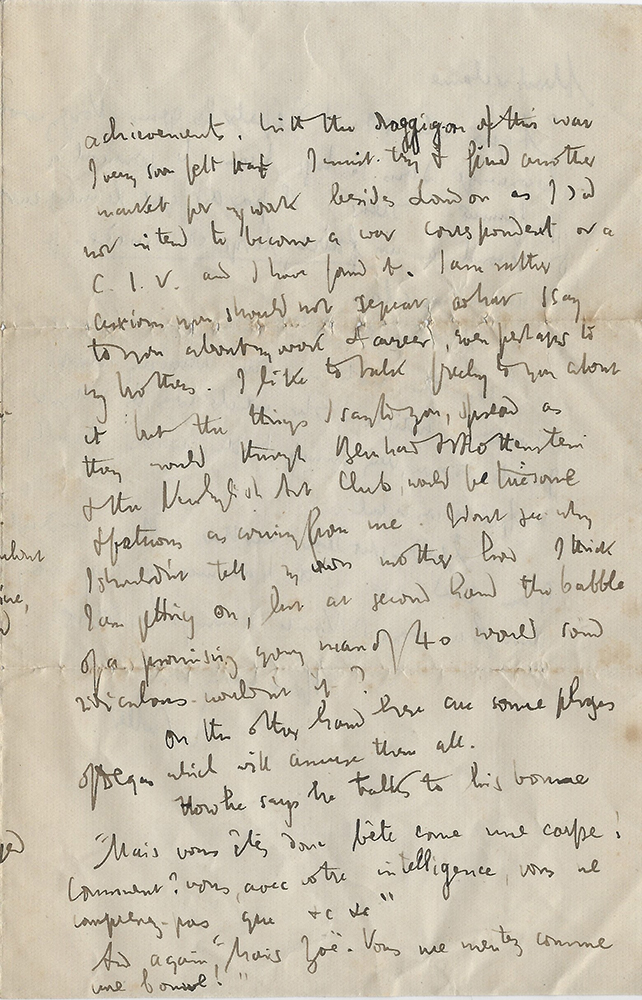 achievements. With the dragging on of this war
I very soon felt that I must try & find another
market for my work besides London as I did
not intend to become a war correspondent or a
C. I. V. and I have found it. I am rather
anxious you should not repeat what I say
to you about my work & career, even perhaps to
my brothers. I like to talk freely to you about
it but the things I say to you, spread as
they would through Bernhard & Rothenstein
& the New English Art Club, would be tiresome
& fatuous as coming from me. I dont see why
I shouldn't tell my own mother how I think
I am getting on, but at second hand the babble
of a promising young man of 40 would sound
ridiculous wouldn't it?
On the other hand here are some phrases
of Degas which will amuse them all.
How he says he talks to his bonne
"Mais vous êtes donc bête come une carpe!
Comment? vous, avec votre intelligence, vous ne
comprenez-pas que &c &c"
And again, "Mais Zoë. Vous me mentez comme
une bonne!"
about
ged